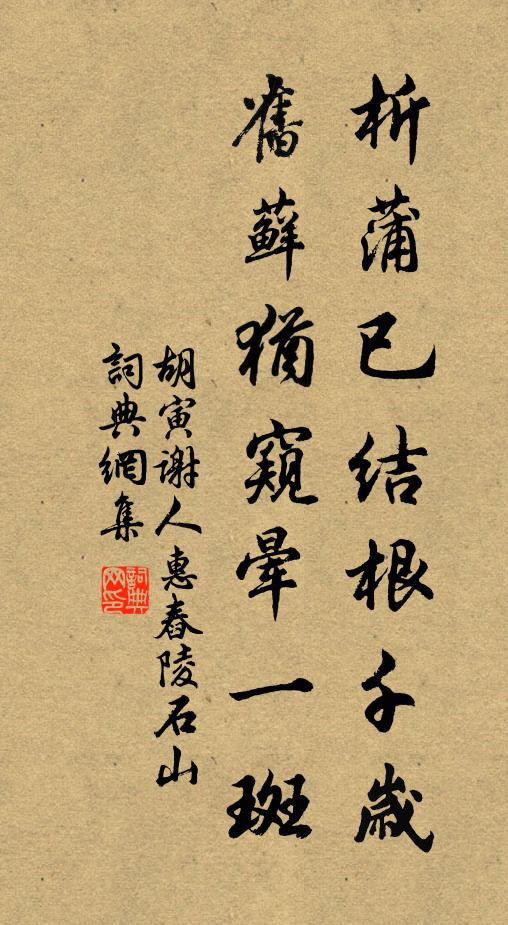 析蒲已結根千歲
舊蘚猶窺暈一斑
胡寅謝人惠舂陵石山
詞典網集
詞典網印